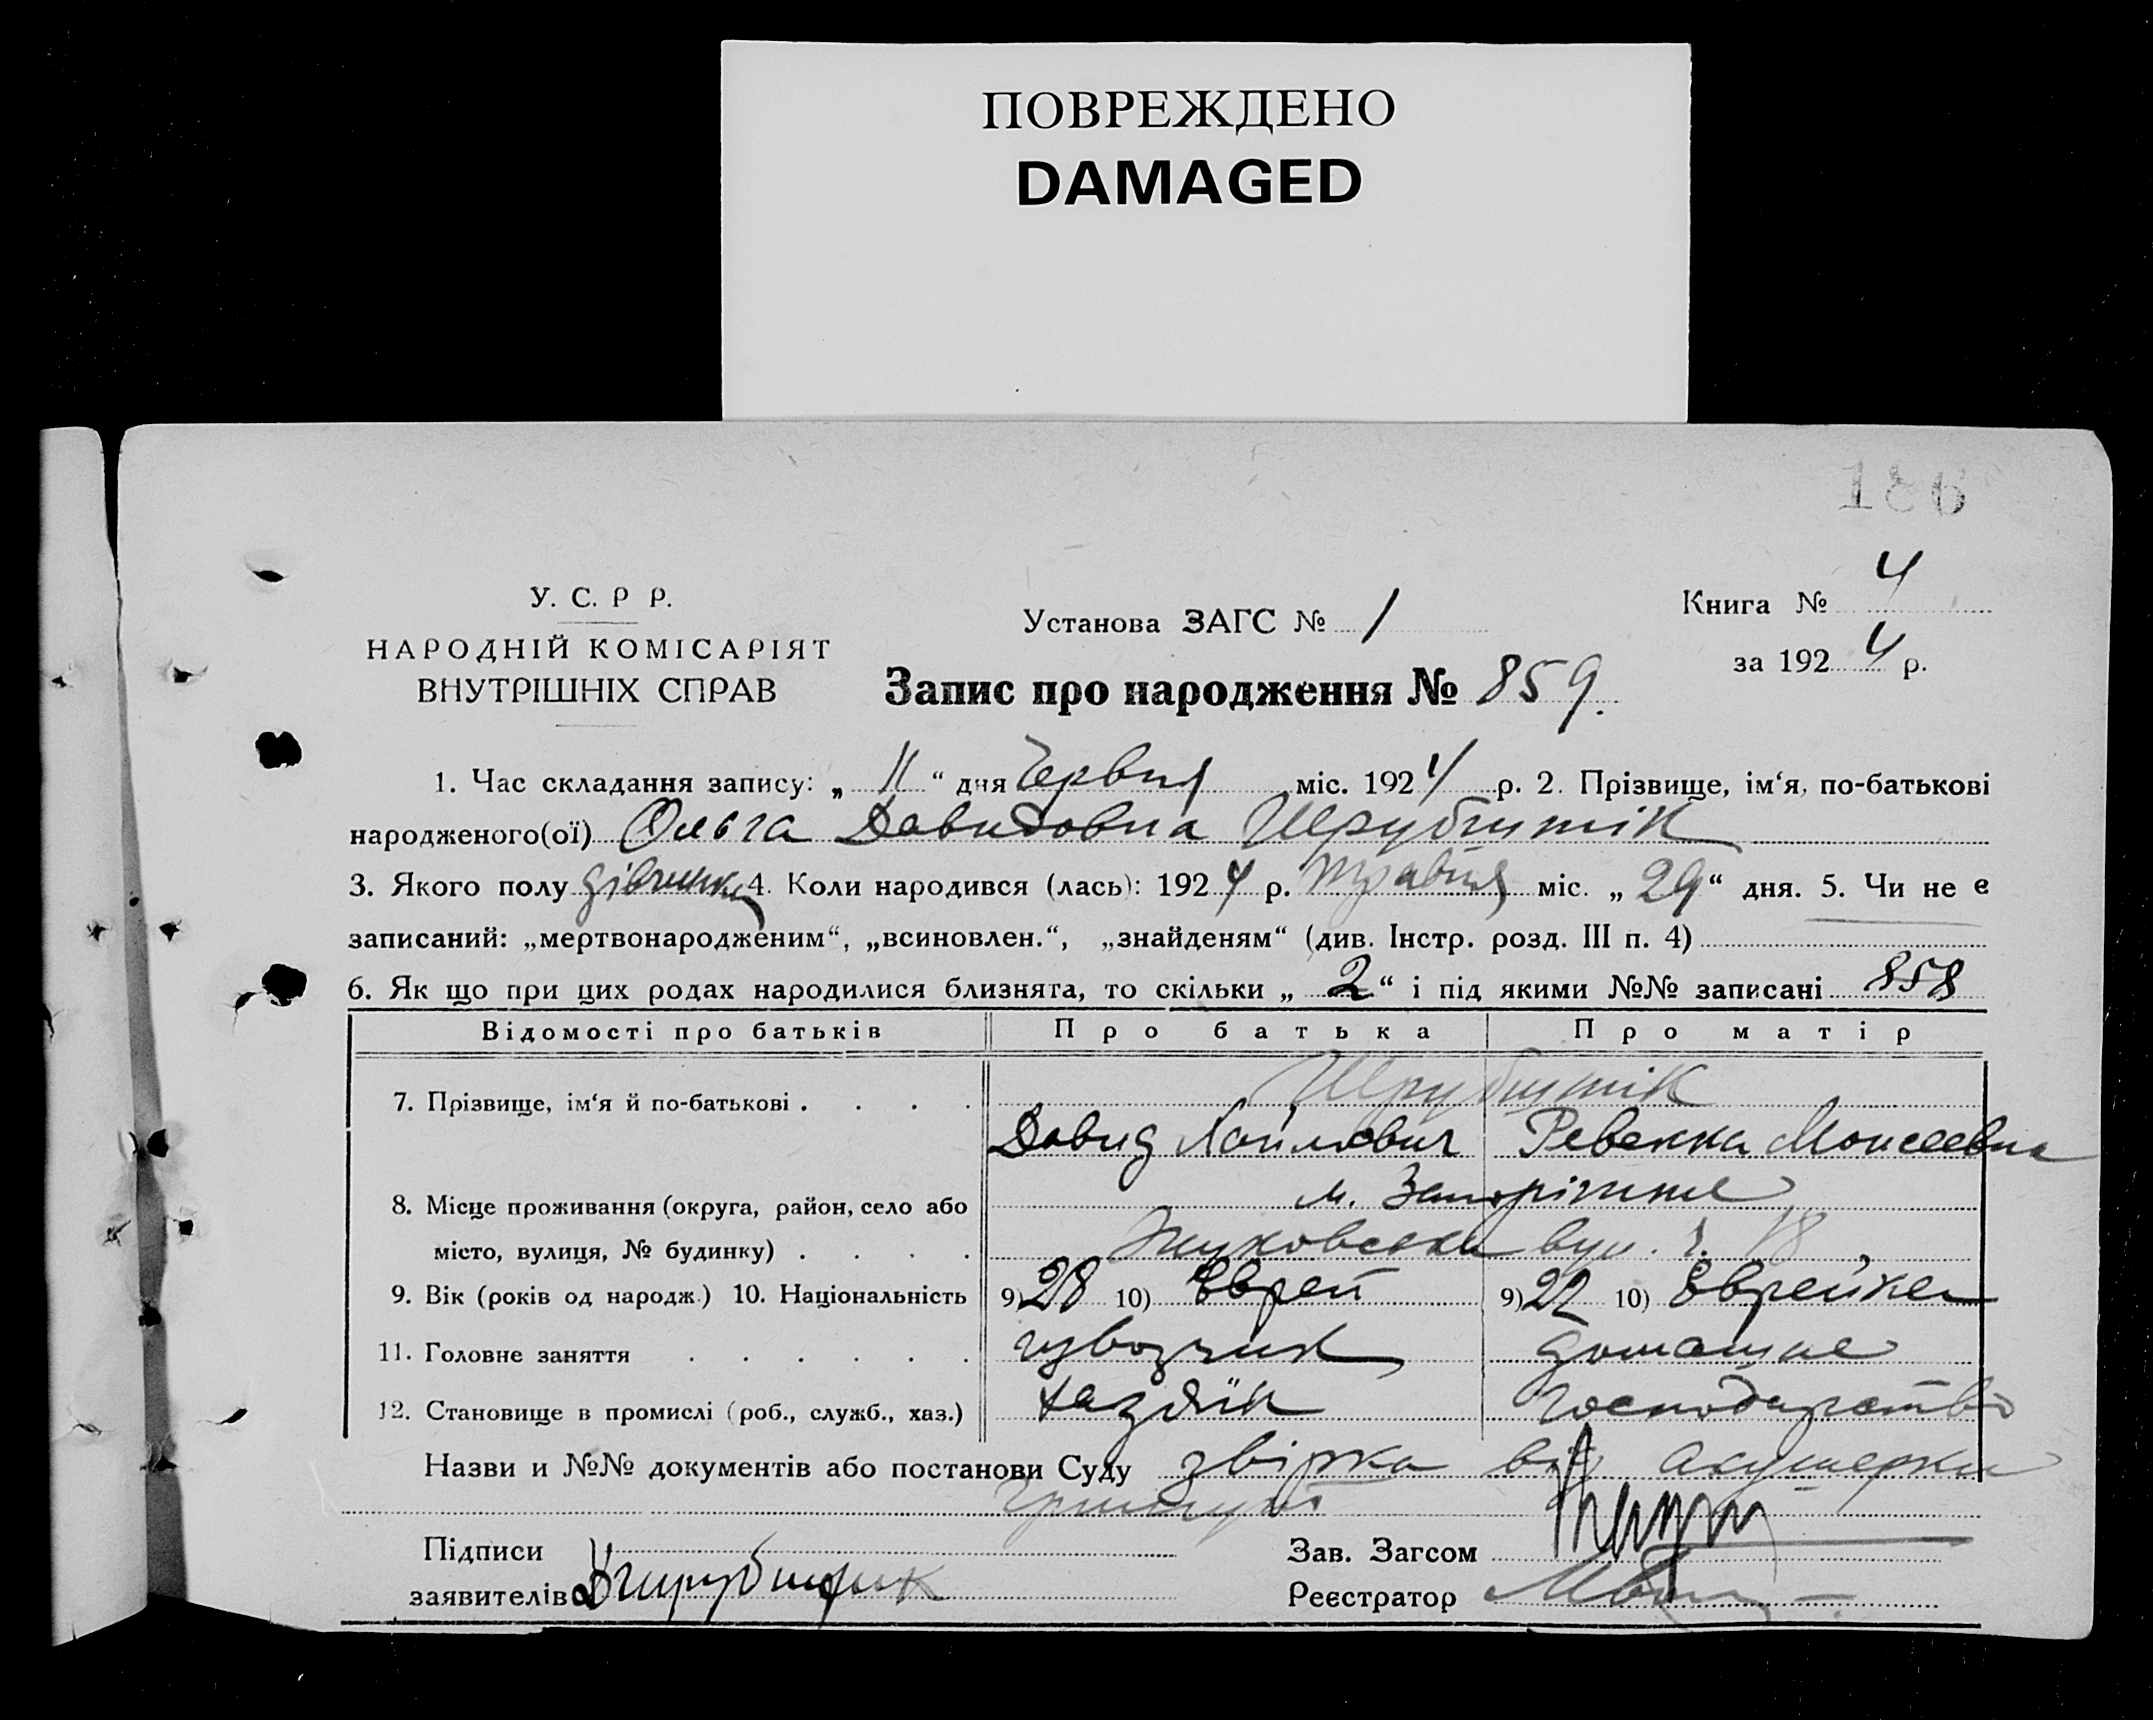 ПОВРЕЖДЕНО
DAMAGED
186
У. С. Р Р.
НАРОДНІЙ КОМІСАРІЯТ
ВНУТРІШНІХ СПРАВ
Установа ЗАГС № 1
Книга № 4
за 1924 р.
Запис про народження № 859.
1. Час складання запису: „ 11 “ дня Червня міс. 1924 р. 2. Прізвище, ім‘я, по-батькові
народженого(ої) Ольга Давидовна Шрубштік
3. Якого полу дівчинка 4. Коли народився (лась): 1924 р. травня міс. „ 29 “ дня. 5. Чи не є
записаний: „мертвонародженим“, „всиновлен.“, „знайденям“ (див. Інстр. розд. III п. 4)
6. Як що при цих родах народилися близнята, то скільки „ 2 “ і під якими №№ записані 858
Відомості про батьків Про батька Про матір
7. Прізвище, ім‘я й по-батькові . . . . Шрубштік
Давид Ревекка Моисеевна
8. Місце проживання (округа, район, село або м. Запоріжже
місто, вулиця, № будинку) . . . . Жуковська вул. ч. 18
9. Вік (років од народж.) 10. Національність 9) 28 10) Єврей 9) 22 10) Єврейка
11. Головне заняття . . . . . . домашне
12. Становище в промислі (роб., служб., хаз.) хазяїн господарство
Назви и №№ документів або постанови Суду звірка від акушерки
Підписи
заявителів Шрубштик
Зав. Загсом
Реєстратор